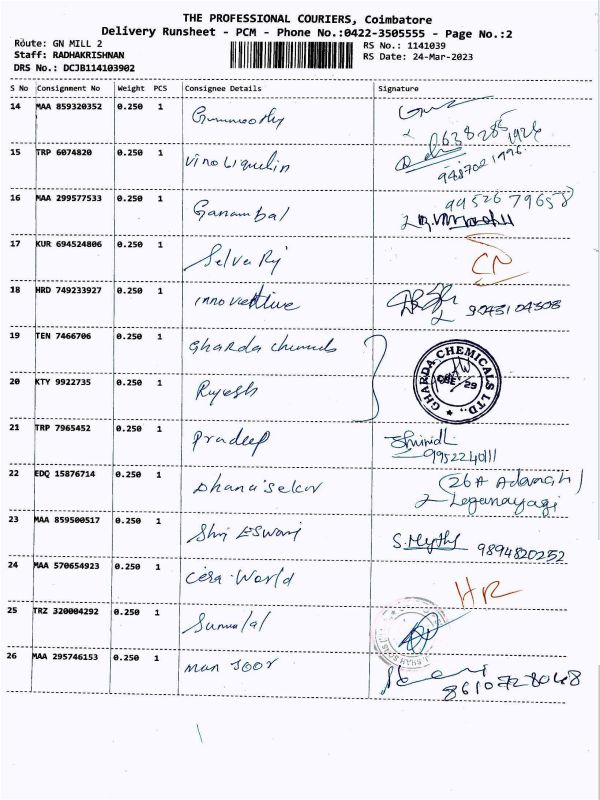 THE PROFESSIONAL COURIERS, Coimbatore
Delivery Runsheet - PCM - Phone No.:0422-3505555 - Page No.:2
Route: GN MILL 2 RS No.: 1141039
Staff: RADHAKRISHNAN RS Date: 24-Mar-2023
DRS No.: DCJB114103902
S No Consignment No Weight PCS Consignee Details Signature
14 MAA 859320352 0.250 1
15 TRP 6074820 0.250 1
9487021996
16 MAA 299577533 0.250 1 Ganambal 9952679658
17 KUR 694524806 0.250 1 Selva Rj CN
18 HRD 749233927 0.250 1 innovative 9043104308
19 TEN 7466706 0.250 1 Gharda chemicals
GHARDA CHEMICALS LTD.,
20 KTY 9922735 0.250 1 Rajesh
21 TRP 7965452 0.250 1 Pradeep
9952224011
22 EDQ 15876714 0.250 1 Dhana sekar
Leganayagi
23 MAA 859500517 0.250 1 Shri Eswari
9894820252
24 MAA 570654923 0.250 1 Cera World HR
25 TRZ 320004292 0.250 1
26 MAA 295746153 0.250 1 Man soor
8610728048